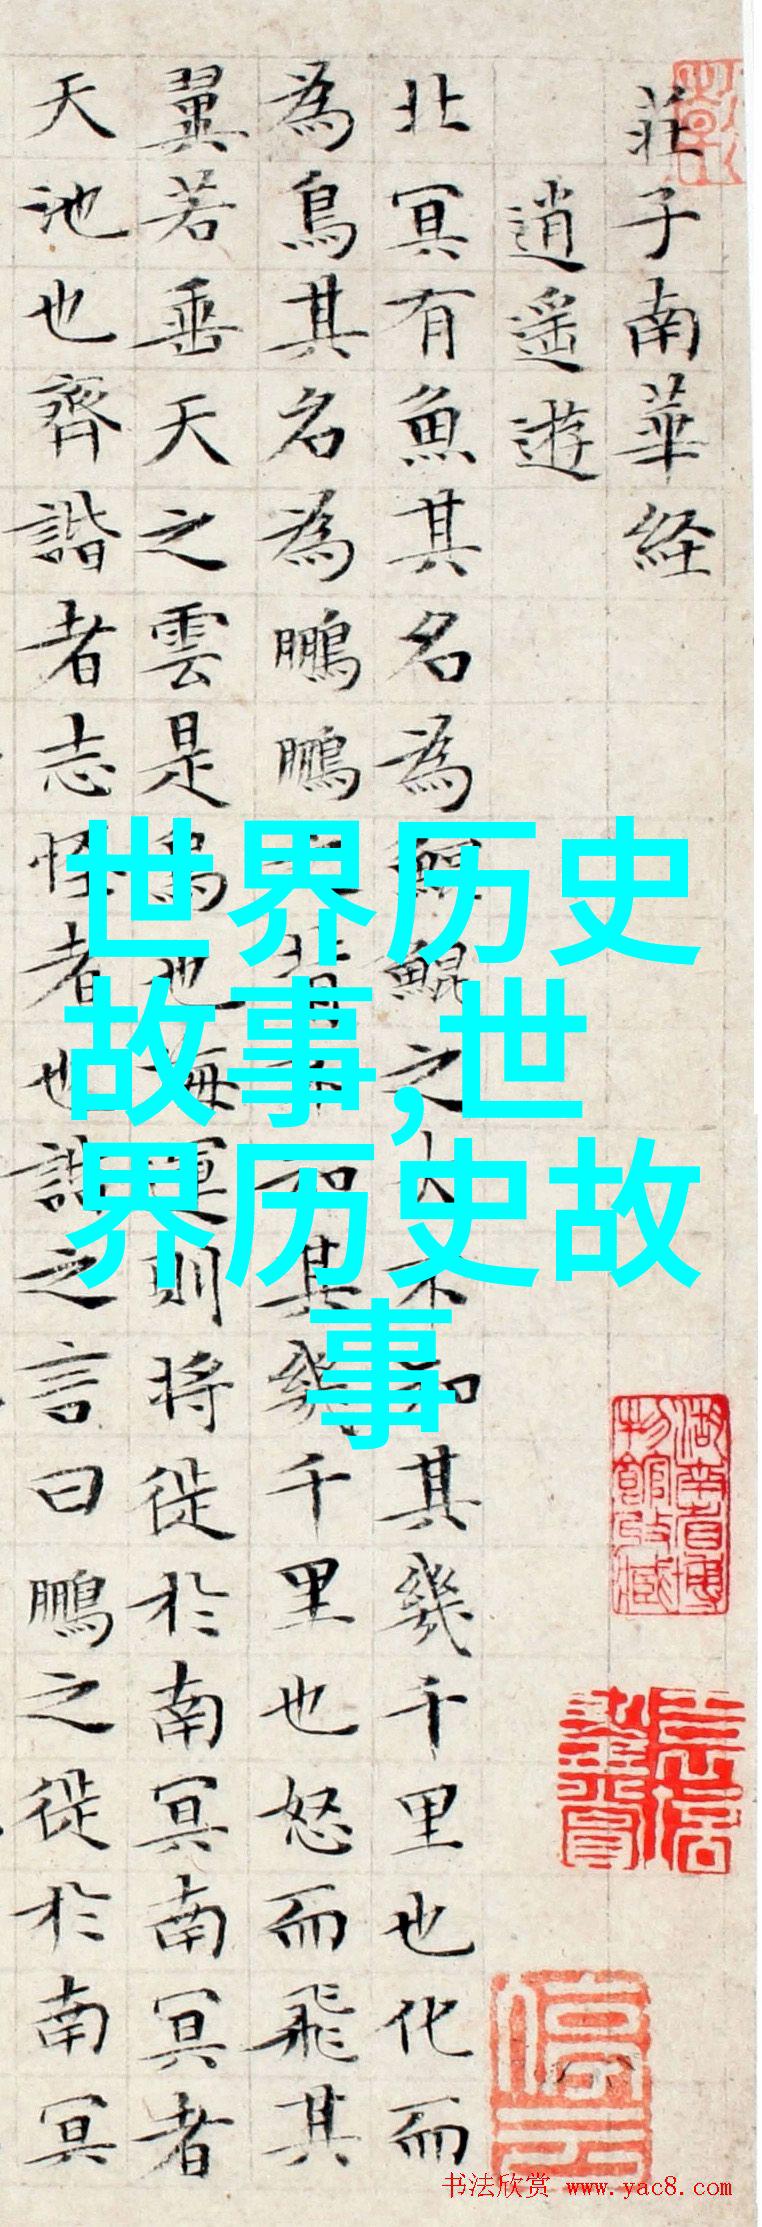 莊子南華経
逍遥遊
北冥有魚其名為鯤鯤之大不知其幾千里也化而
為鳥其名為鵬鵬之背不知其幾千里也怒而飛其
翼若垂天之雲是鳥也海運則将徙於南冥南冥者
天池也齊諧者志怪者也諧之言曰鵬之徙於南冥
世界历史
故事,世
界历史故
事
湖南省博
物館收藏
书法欣赏 www.yac8.com